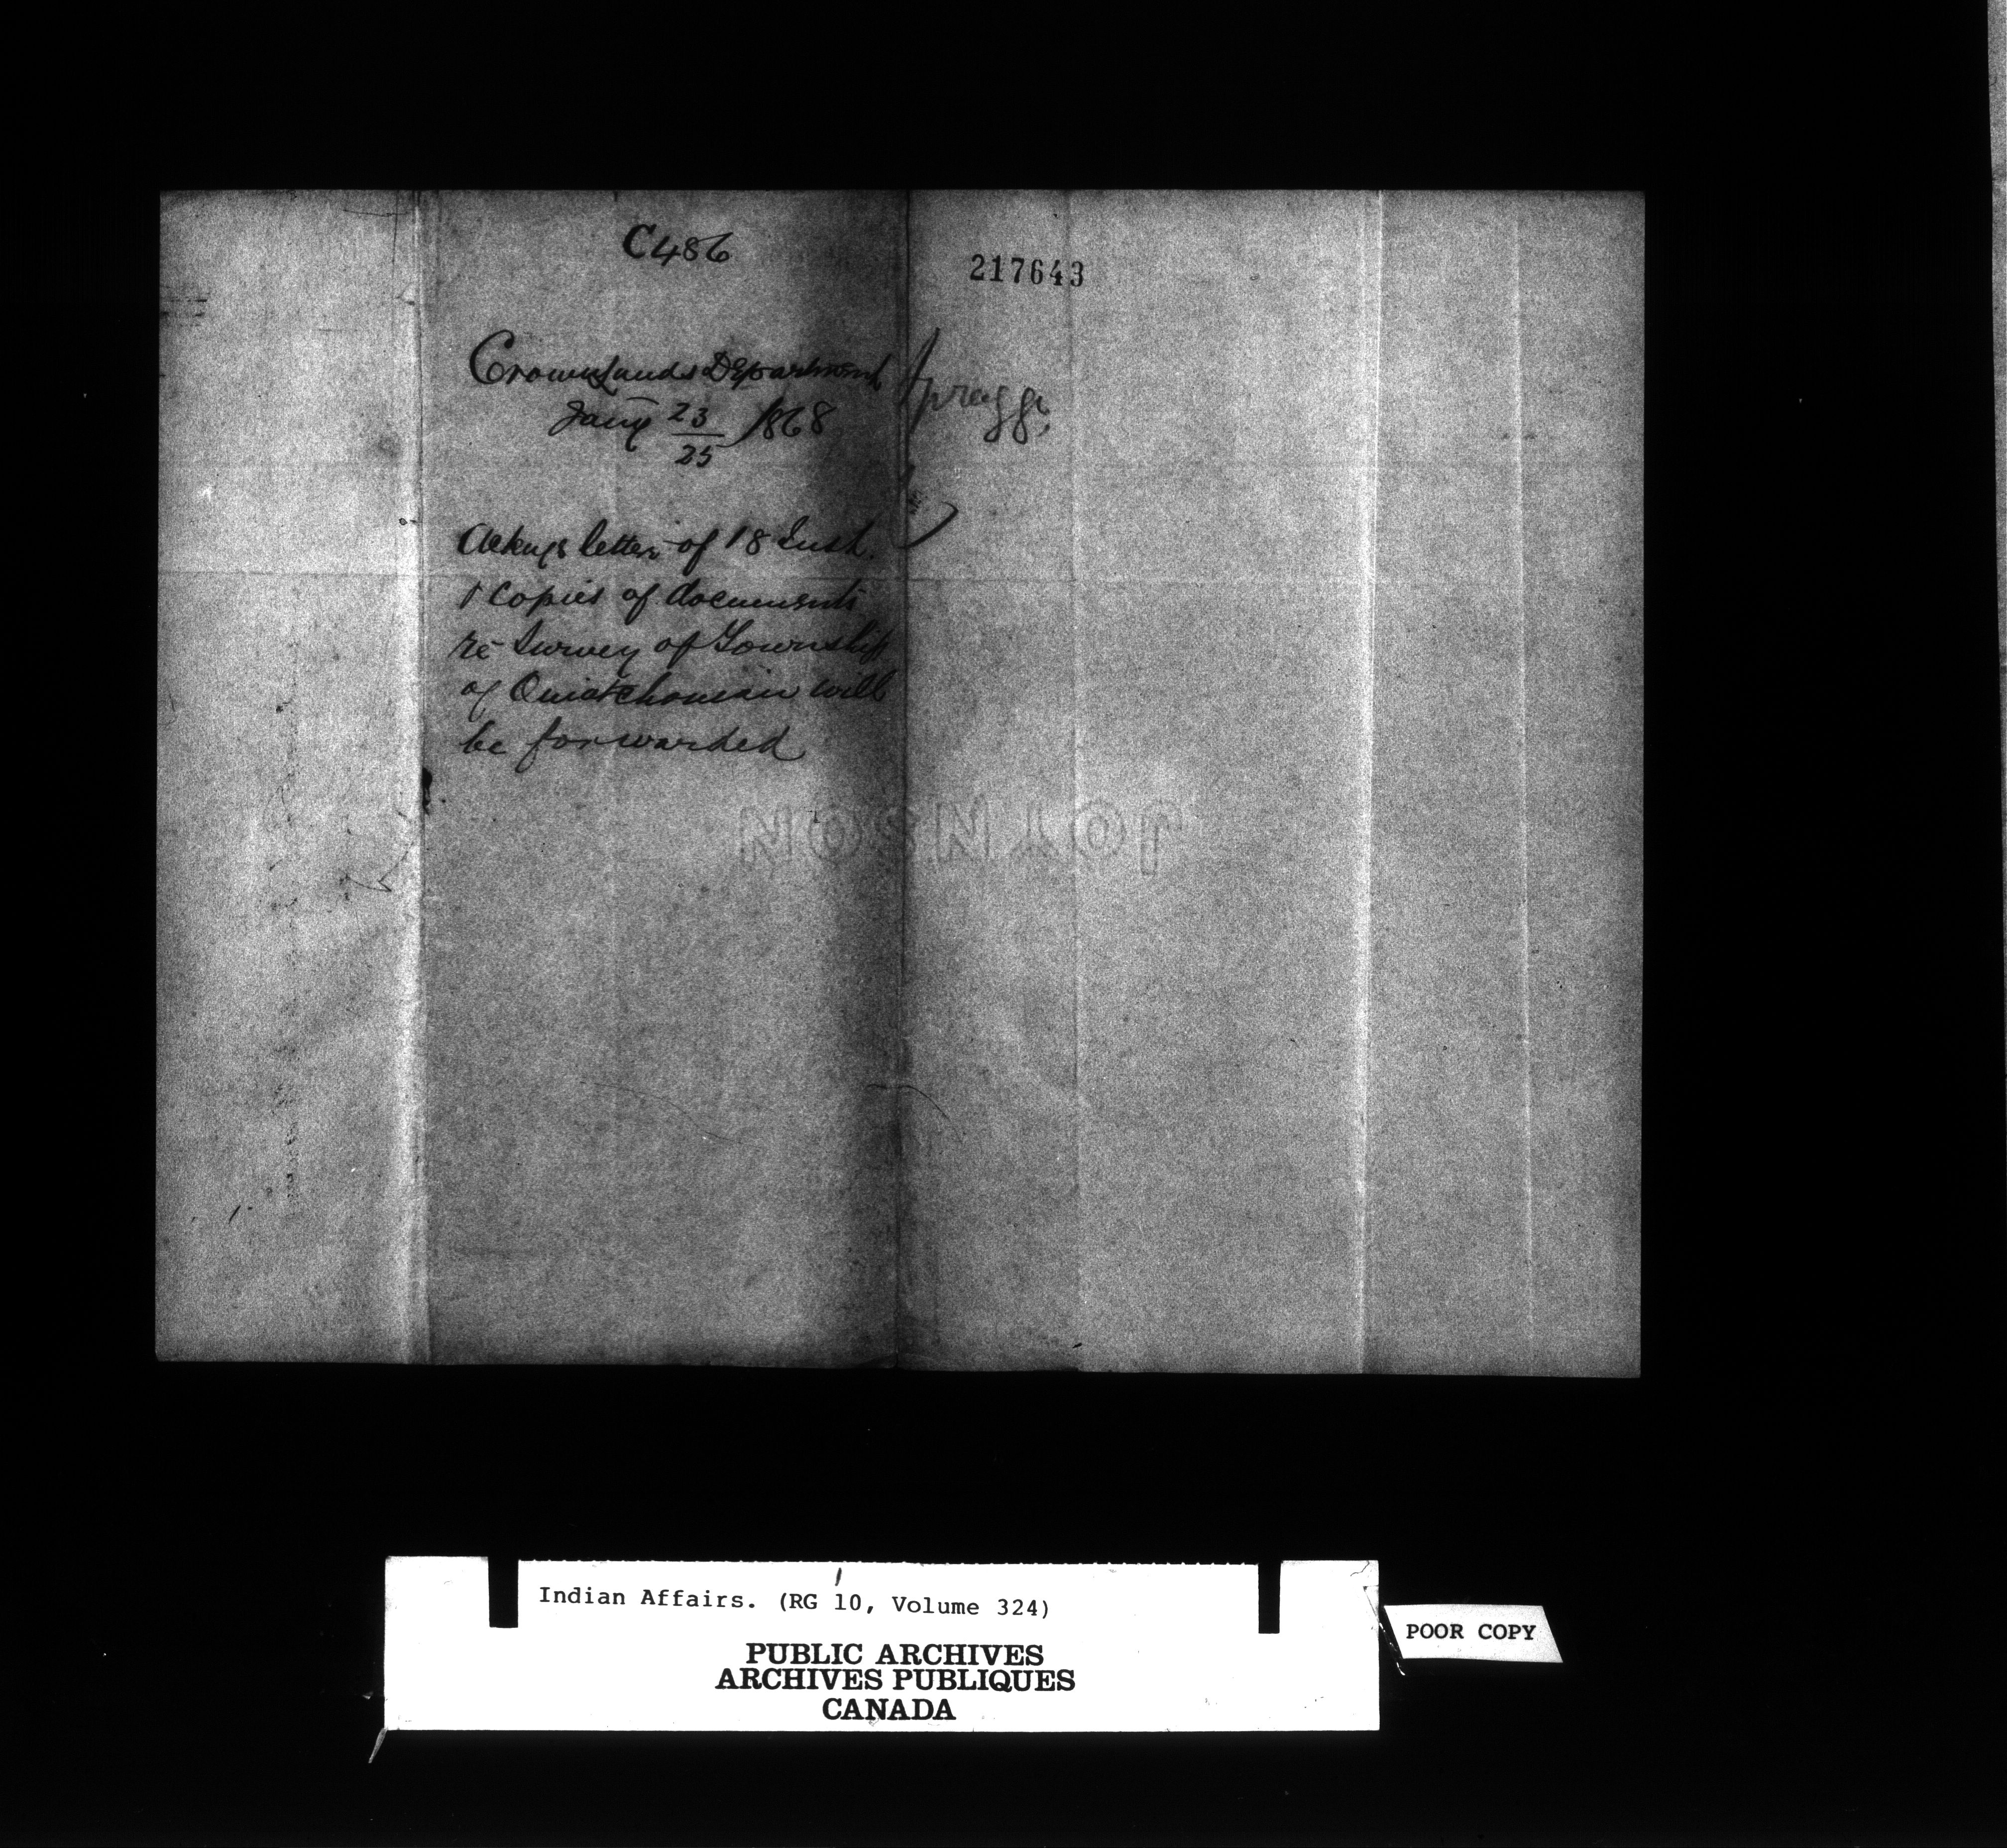 C486
217643
Crown Lands Department
Jany 23/25 1868
Spragge
Ackngs letter of 18 Inst.
& Copies of documents
re Survey of Township
of Ouiatchouan will
be forwarded
JOYNSON
Indian Affairs. (RG 10, Volume 324)
PUBLIC ARCHIVES
ARCHIVES PUBLIQUES
CANADA
POOR COPY